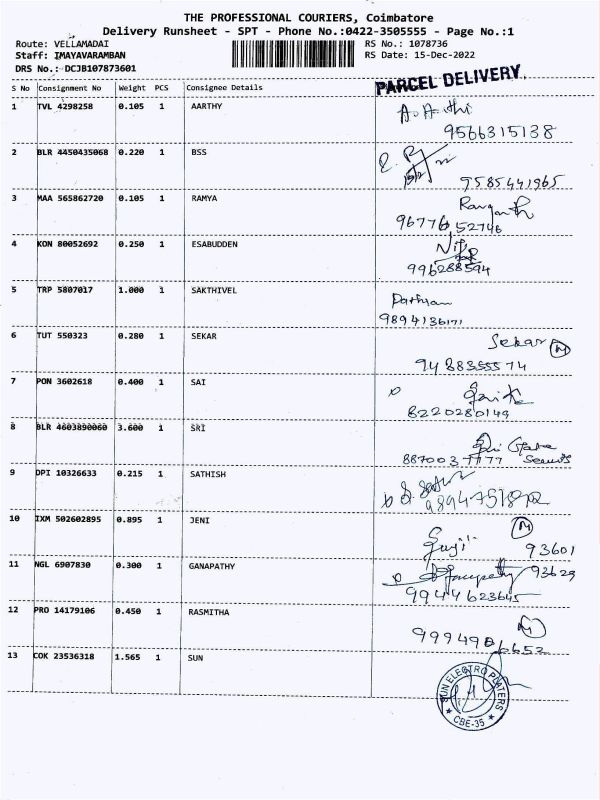 THE PROFESSIONAL COURIERS, Coimbatore
Delivery Runsheet - SPT - Phone No.:0422-3505555 - Page No.:1
Route: VELLAMADAI RS No.: 1078736
Staff: IMAYAVARAMBAN RS Date: 15-Dec-2022
DRS No.: DCJB107873601
PARCEL DELIVERY
S No Consignment No Weight PCS Consignee Details
1 TVL 4298258 0.105 1 AARTHY
9566315138
2 BLR 4450435068 0.220 1 BSS
9585441965
3 MAA 565862720 0.105 1 RAMYA
Ranganath
96776 52746
4 KON 80052692 0.250 1 ESABUDDEN
996288594
5 TRP 5807017 1.000 1 SAKTHIVEL
9894136171
6 TUT 550323 0.280 1 SEKAR
Sekar M
9488355574
7 PON 3602618 0.400 1 SAI
8220280149
8 BLR 4603890060 3.600 1 SRI
8870037777
9 DPI 10326633 0.215 1 SATHISH
10 IXM 502602895 0.895 1 JENI
M
93601
11 NGL 6907830 0.300 1 GANAPATHY
93629
9944623645
12 PRO 14179106 0.450 1 RASMITHA
M
13 COK 23536318 1.565 1 SUN
SUN ELECTRO PLATERS
★ CBE-35 ★